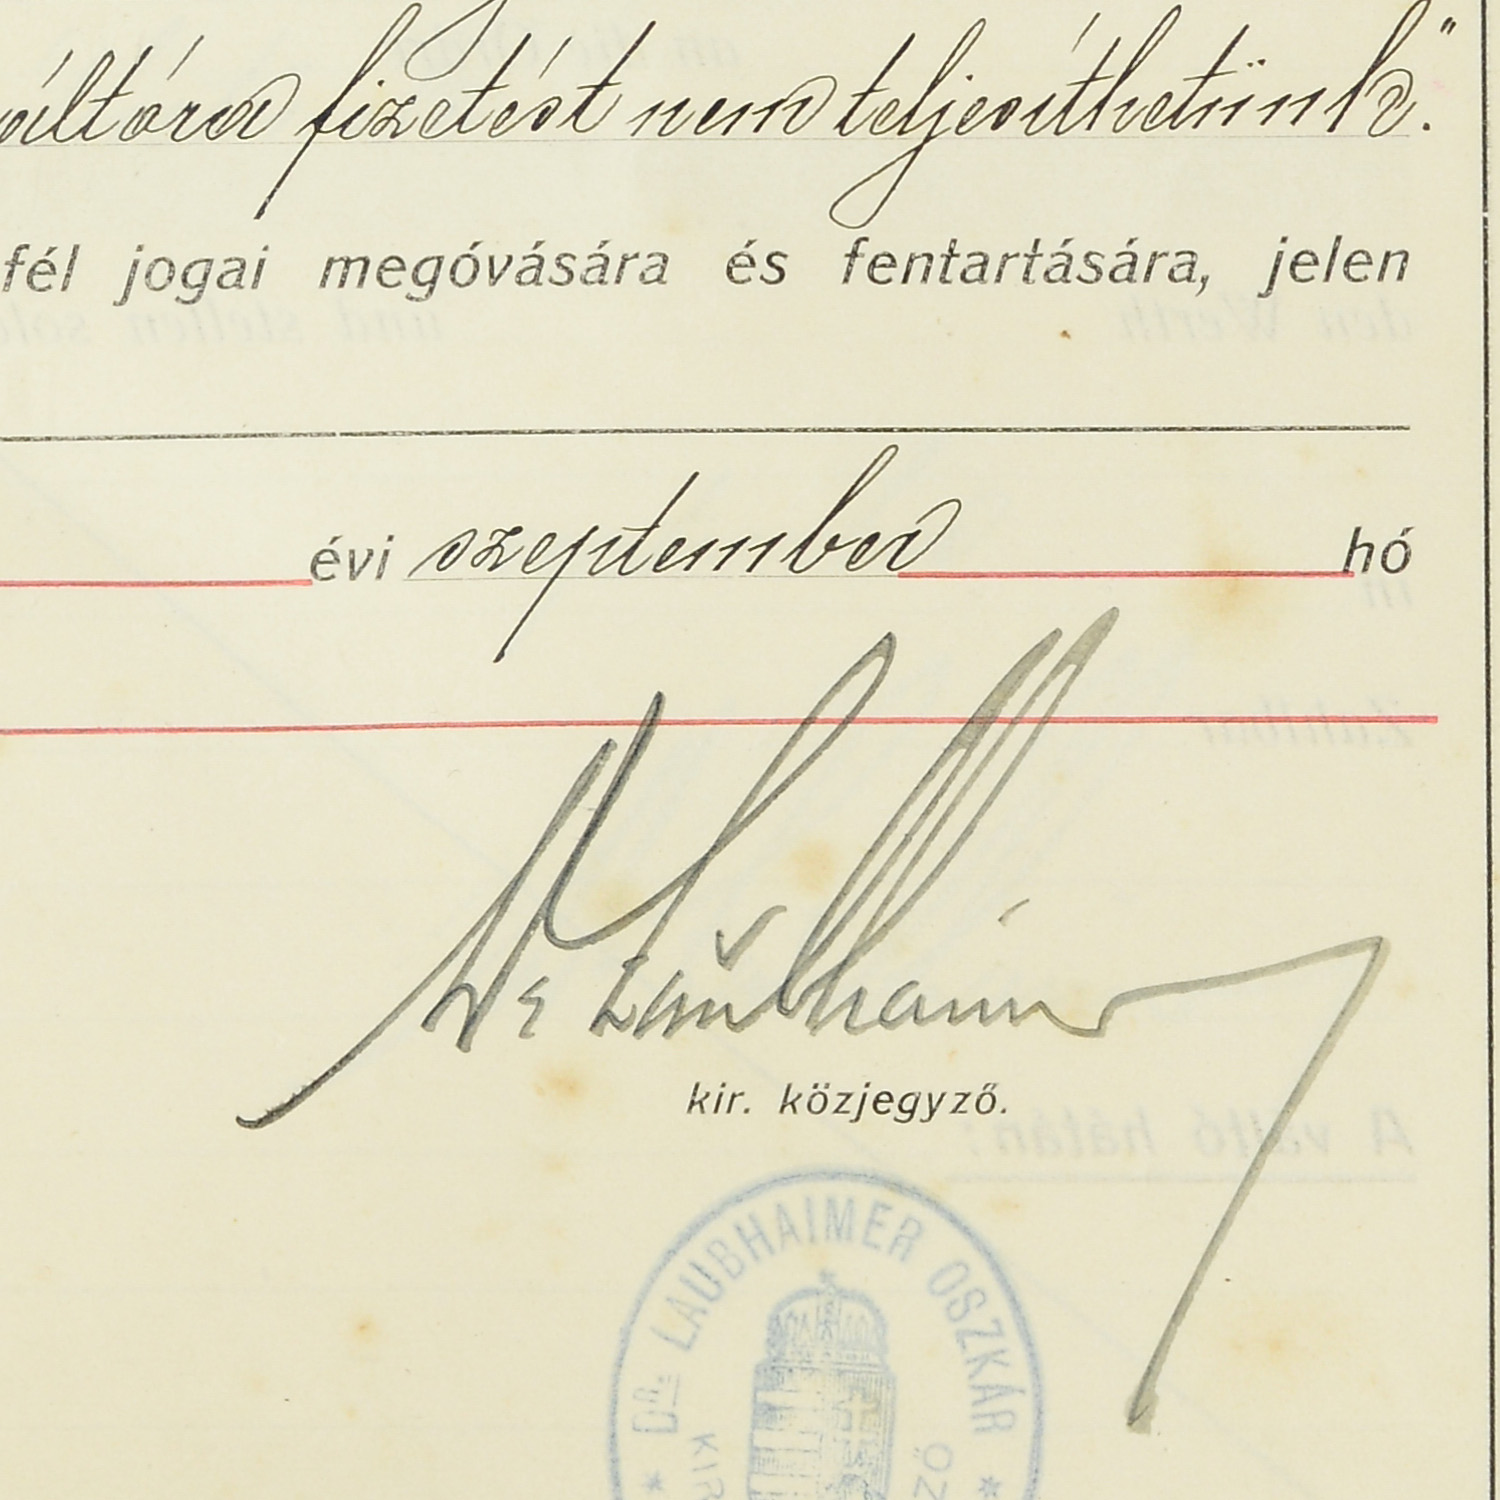 váltóra fizetést nem teljesíthetünk."
fél jogai megóvására és fentartására, jelen
évi szeptember hó
Dr Laubhaimer
kir. közjegyző.
* DR. LAUBHAIMER OSZKÁR *
KIR
ÖZ
den Werth
und stellen
in
A váltó hátán: